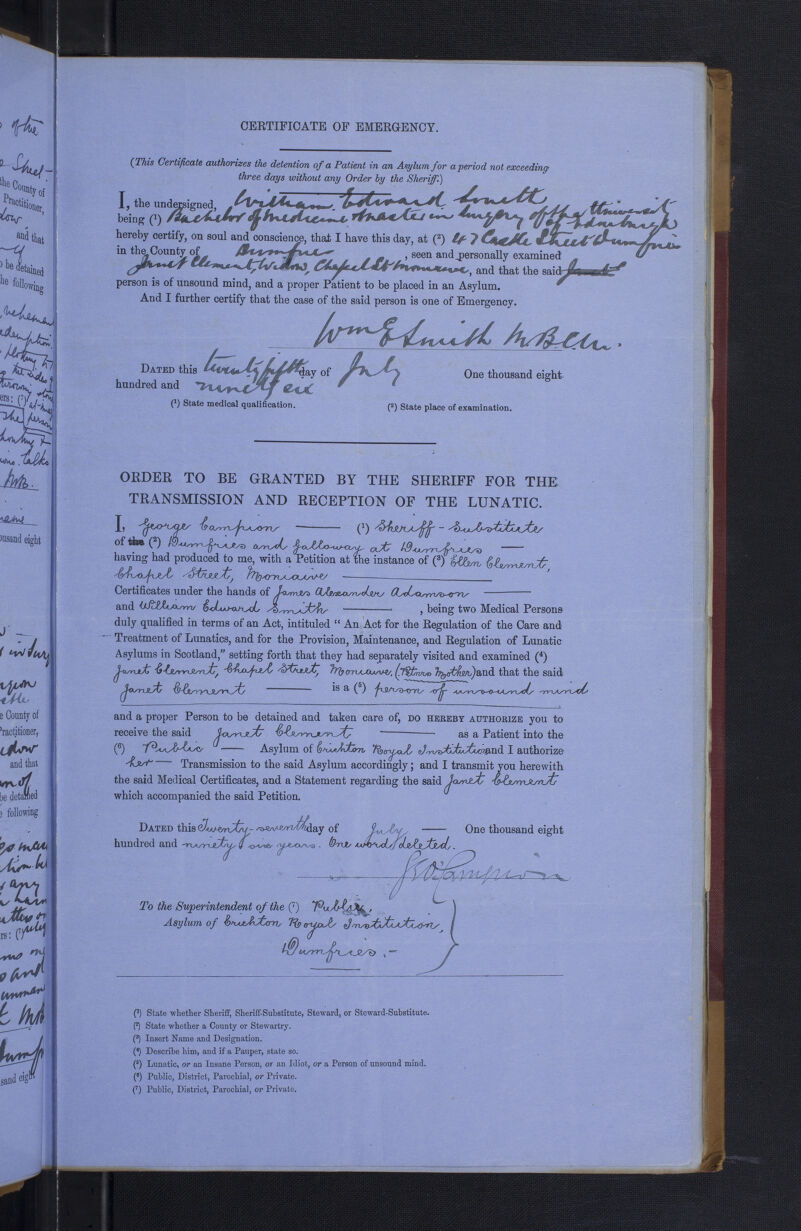 CERTIFICATE OF EMERGENCY.
(This Certificate authorizes the detention of a Patient in an Asylum for a period not exceeding
three days without any Order by the Sheriff.)
I, the undersigned, William Edward Smith
being (1) Bachelor of Medicine & Master in Surgery of the University of Edinburgh
hereby certify, on soul and conscience, that I have this day, at (2) 47 Castle Street Dumfries
in the County of Dumfries, seen and personally examined
Janet Clement, Widow, Chapel St Moniaive, and that the said Janet
person is of unsound mind, and a proper Patient to be placed in an Asylum.
And I further certify that the case of the said person is one of Emergency.
Wm E Smith M.B. C.M.
DATED this twenty fifth day of July One thousand eight
hundred and ninety six
(1) State medical qualification. (2) State place of examination.
ORDER TO BE GRANTED BY THE SHERIFF FOR THE
TRANSMISSION AND RECEPTION OF THE LUNATIC.
I, George Campion (1) Sheriff-Substitute
of the (2) Dumfries and Galloway at Dumfries
having had produced to me, with a Petition at the instance of (3) Ellen Clement,
Chapel Street, Moniaive
Certificates under the hands of James Alexander Adamson
and William Edward Smith, being two Medical Persons
duly qualified in terms of an Act, intituled " An Act for the Regulation of the Care and
Treatment of Lunatics, and for the Provision, Maintenance, and Regulation of Lunatic
Asylums in Scotland," setting forth that they had separately visited and examined (4)
Janet Clement, Chapel Street, Moniaive, (Petnrs Mother) and that the said
Janet Clement is a (5) person of unsound mind
and a proper Person to be detained and taken care of, DO HEREBY AUTHORIZE you to
receive the said Janet Clement as a Patient into the
(6) Public Asylum of Crichton Royal Institution and I authorize
her Transmission to the said Asylum accordingly; and I transmit you herewith
the said Medical Certificates, and a Statement regarding the said Janet Clement
which accompanied the said Petition.
DATED this Twenty-seventh day of July One thousand eight
hundred and ninety six years. One word deleted.
To the Superintendent of the (7) Public
Asylum of Crichton Royal Institution,
Dumfries.-
(1) State whether Sheriff, Sheriff-Substitute, Steward, or Steward-Substitute.
(2) State whether a County or Stewartry.
(3) Insert Name and Designation.
(4) Describe him, and if a Pauper, state so.
(5) Lunatic, or an Insane Person, or an Idiot, or a Person of unsound mind.
(6) Public, District, Parochial, or Private.
(7) Public, District, Parochial, or Private.